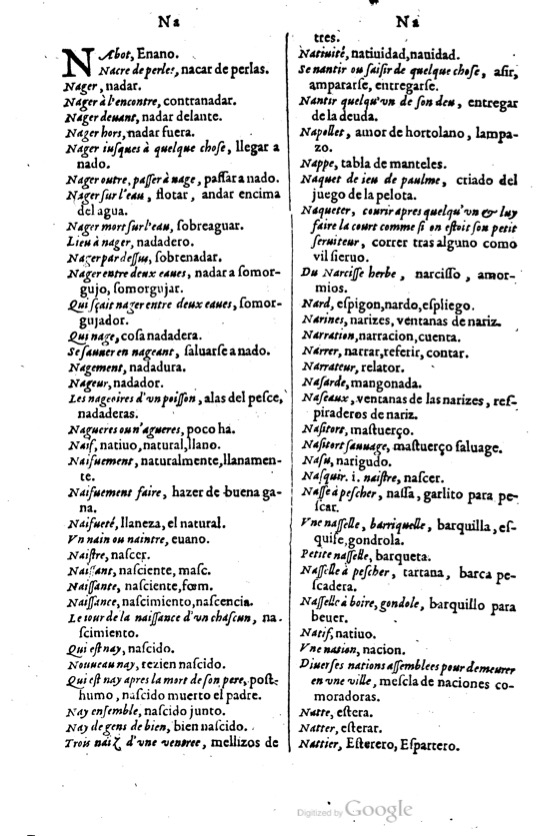 Na
NAbot, Enano.
Nacre de perles, nacar de perlas.
Nager, nadar.
Nager à l'encontre, contranadar.
Nager deuant, nadar delante.
Nager hors, nadar fuera.
Nager iuſques à quelque choſe, llegar a
nado.
Nager outre, paſſer à nage, paſſar a nado.
Nager ſur l'eau, flotar, andar encima
del agua.
Nager mort ſur l'eau, ſobreaguar.
Lieu à nager, nadadero.
Nager par deſſus, ſobrenadar.
Nager entre deux eaues, nadar a ſomor-
gujo, ſomorgujar.
Qui ſçait nager entre deux eaues, ſomor-
gujador.
Qui nage, coſa nadadera.
Se ſauuer en nageant, ſaluarſe a nado.
Nagement, nadadura.
Nageur, nadador.
Les nageoires d'vn poiſſon, alas del peſce,
nadaderas.
Nagueres ou n'agueres, poco ha.
Naif, natiuo, natural, llano.
Naifuement, naturalmente, llanamen-
te.
Naifuement faire, hazer de buena ga-
na.
Naifueté, llaneza, el natural.
Vn nain ou naintre, euano.
Naiſtre, naſcer.
Naiſſant, naſciente, maſc.
Naiſſante, naſciente, fœm.
Naiſſance, naſcimiento, naſcencia.
Le iour de la naiſſance d'vn chaſcun, na-
ſcimiento.
Qui eſt nay, naſcido.
Nouueau nay, rezien naſcido.
Qui eſt nay apres la mort de ſon pere, poſt-
humo, naſcido muerto el padre.
Nay enſemble, naſcido junto.
Nay de gens de bien, bien naſcido.
Trois naiz d'vne ventree, mellizos de
Na
tres.
Natiuité, natiuidad, nauidad.
Se nantir ou ſaiſir de quelque choſe, aſir,
ampararſe, entregarſe.
Nantir quelqu'vn de ſon deu, entregar
de la deuda.
Napollet, amor de hortolano, lampa-
zo.
Nappe, tabla de manteles.
Naquet de ieu de paulme, criado del
juego de la pelota.
Naqueter, courir apres quelqu'vn & luy
faire la court comme ſi on eſtoit ſon petit
ſeruiteur, correr tras alguno como
vil ſieruo.
Du Narciſſe herbe, narciſſo, amor-
mios.
Nard, eſpigon, nardo, eſpliego.
Narines, narizes, ventanas de nariz.
Narration, narracion, cuenta.
Narrer, narrar, referir, contar.
Narrateur, relator.
Naſarde, mangonada.
Naſeaux, ventanas de las narizes, reſ-
piraderos de nariz.
Naſitort, maſtuerço.
Naſitort ſauuage, maſtuerço ſaluage.
Naſu, narigudo.
Naſquir. i. naiſtre, naſcer.
Naſſe à peſcher, naſſa, garlito para pe-
ſcar.
Vne naſſelle, barriquelle, barquilla, eſ-
quife, gondrola.
Petite naſſelle, barqueta.
Naſſelle à peſcher, tartana, barca pe-
ſcadera.
Naſſelle à boire, gondole, barquillo para
beuer.
Natif, natiuo.
Vne nation, nacion.
Diuerſes nations aſſemblees pour demeurer
en vne ville, meſcla de naciones co-
moradoras.
Natte, eſtera.
Natter, eſterar.
Nattier, Eſterero, Eſpartero.
Digitized by Google